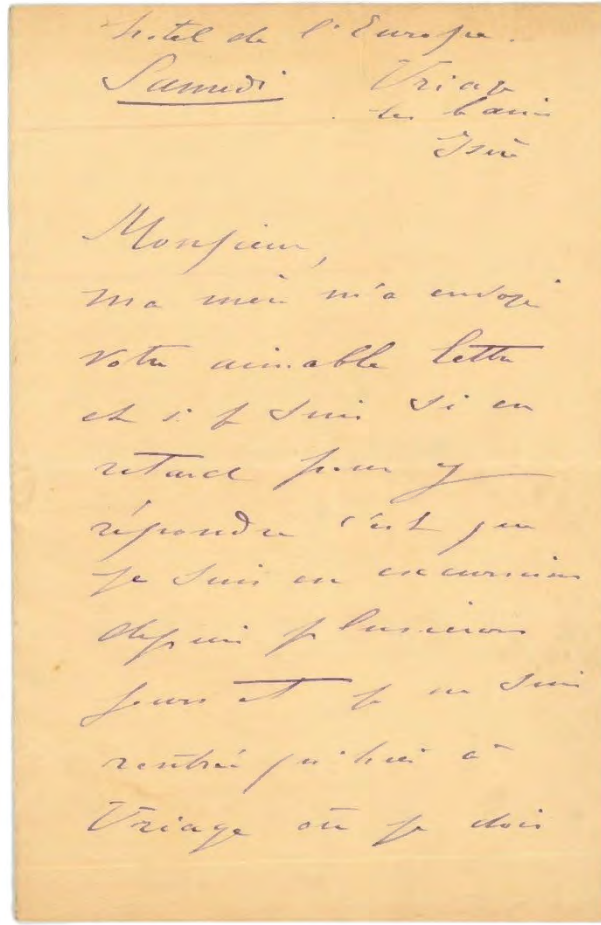 hotel de l'Europe.
Samedi Uriage
les bains
Isère
Monsieur,
ma mère m'a envoyé
votre aimable lettre
et si je suis si en
retard pour y
répondre c'est que
je suis en excursion
depuis plusieurs
jours et je ne suis
rentrée qu'hier à
Uriage où je dois